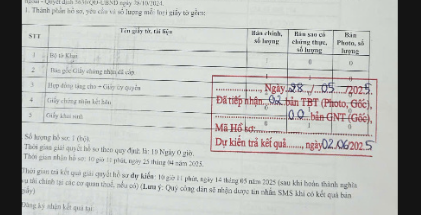 Quyết định 3630/QĐ-UBND ngày 28/10/2024.
1. Thành phần hồ sơ, yêu cầu và số lượng mỗi loại giấy tờ gồm:
STT
Tên giấy tờ, tài liệu
Bản chính, số lượng
Bản sao có chứng thực, số lượng
Bản Photo, số lượng
1 Bộ tờ khai 0 0
2 Bản gốc Giấy chứng nhận đã cấp
3 Hợp đồng tặng cho + Giấy ủy quyền
4 Giấy chứng nhận kết hôn
5 Giấy khai sinh
Ngày 28/05/2025
Đã tiếp nhận 02 bản TBT (Photo, Gốc),
00 bản GNT (Gốc).
Mã Hồ sơ
Dự kiến trả kết quả, ngày 02.06.2025
Số lượng hồ sơ: 1 (bộ).
Thời gian giải quyết hồ sơ theo quy định là: 15 Ngày 0 giờ.
Thời gian nhận hồ sơ: 10 giờ 11 phút, ngày 25 tháng 04 năm 2025.
Thời gian trả kết quả giải quyết hồ sơ dự kiến: 10 giờ 11 phút, ngày 14 tháng 05 năm 2025 (sau khi hoàn thành nghĩa
vụ tài chính tại các cơ quan thuế, nếu có) (Lưu ý: Quý công dân sẽ nhận được tin nhắn SMS khi có kết quả bản
giấy)
Đăng ký nhận kết quả tại: